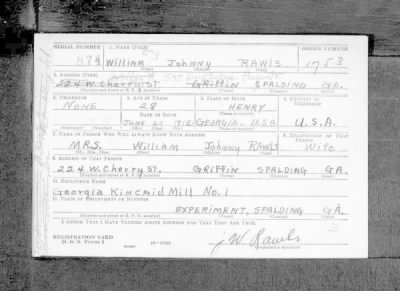 SERIAL NUMBER 1. NAME (Print) ORDER NUMBER
874 William Johnny RAWLS 1753
2. ADDRESS (Print)
224 W. Cherry St GRIFFIN SPALDING GA.
3. TELEPHONE 4. AGE IN YEARS 5. PLACE OF BIRTH 6. COUNTRY OF CITIZENSHIP
NONE 28 HENRY
DATE OF BIRTH
JUNE 21 1912 GEORGIA. U.S.A U.S.A.
7. NAME OF PERSON WHO WILL ALWAYS KNOW YOUR ADDRESS 8. RELATIONSHIP OF THAT PERSON
MRS. William Johnny RAWLS Wife
9. ADDRESS OF THAT PERSON
224 W. Cherry St. GRIFFIN SPALDING GA.
10. EMPLOYER'S NAME
Georgia Kincaid Mill No. 1
11. PLACE OF EMPLOYMENT OR BUSINESS
EXPERIMENT, SPALDING GA.
I AFFIRM THAT I HAVE VERIFIED ABOVE ANSWERS AND THAT THEY ARE TRUE.
REGISTRATION CARD
D. S. S. Form 1
J W Rawls